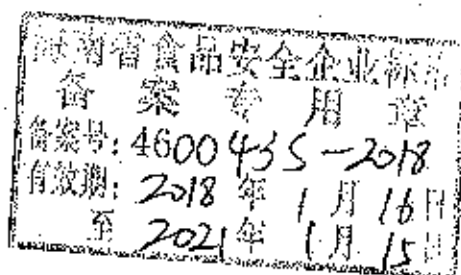 海南省食品安全企业标准
备案专用章
备案号: 460043S-2018
有效期: 2018年1月16日
至 2021年1月15日